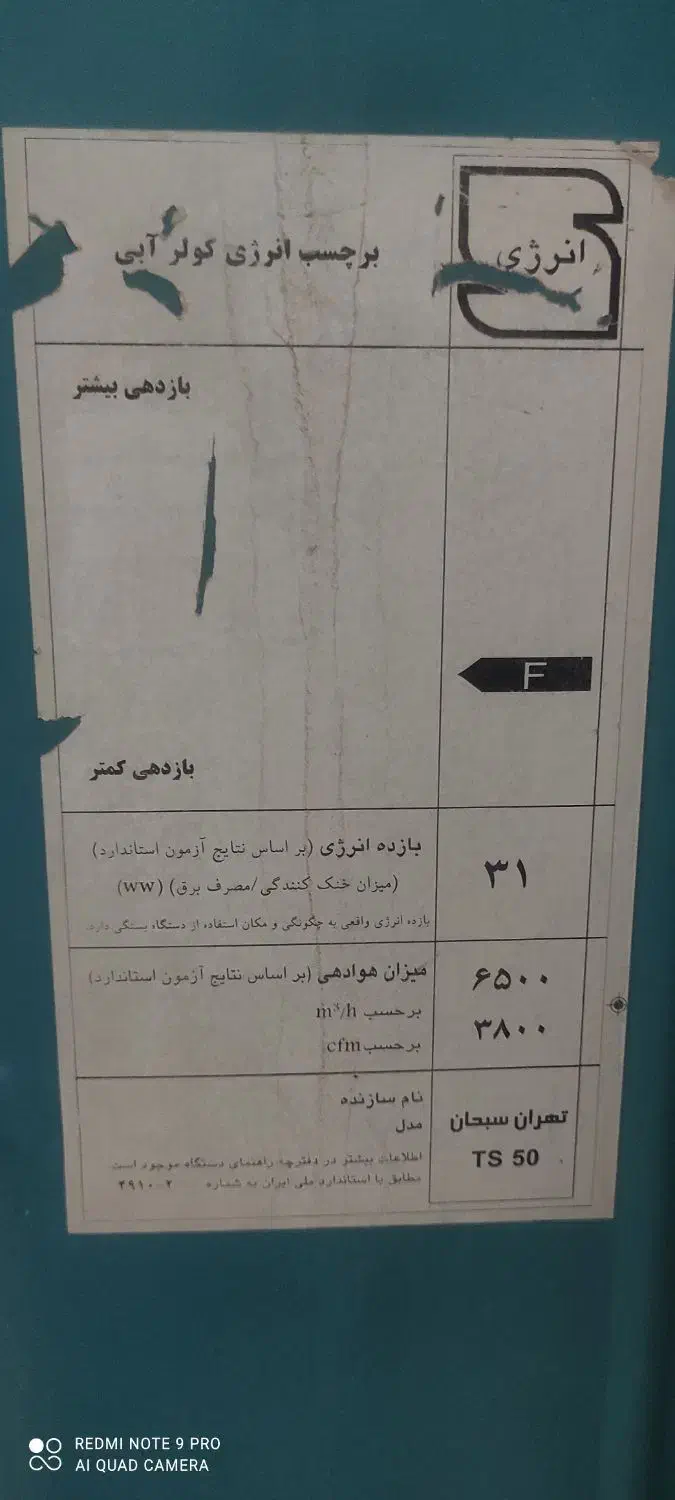 انرژی
برچسب انرژی کولر آبی
بازدهی بیشتر
F
بازدهی کمتر
بازده انرژی (بر اساس نتایج آزمون استاندارد)
(میزان خنک کنندگی/مصرف برق) (ww)
۳۱
بازده انرژی واقعی به چگونگی و مکان استفاده از دستگاه بستگی دارد.
میزان هوادهی (بر اساس نتایج آزمون استاندارد)
برحسب m³/h
۶۵۰۰
برحسب cfm
۳۸۰۰
نام سازنده
تهران سبحان
مدل
TS 50
اطلاعات بیشتر در دفترچه راهنمای دستگاه موجود است
مطابق با استاندارد ملی ایران به شماره ۲-۴۹۱۰
REDMI NOTE 9 PRO
AI QUAD CAMERA